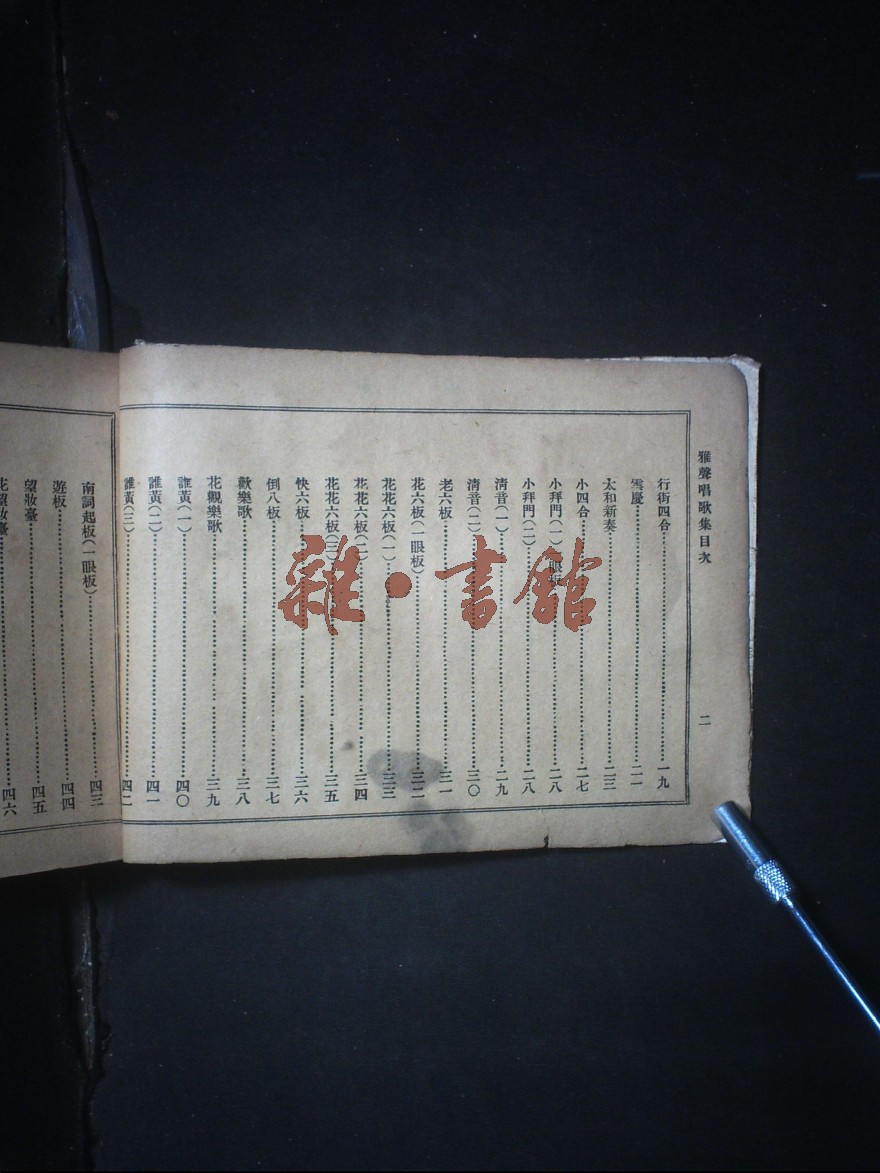 雅聲唱歌集目次
二
行街四合……一九
雲慶……二一
太和新奏……二三
小四合……二七
小拜門(一)(一眼板)……二八
小拜門(二)……二八
淸音(一)……二九
淸音(二)……三〇
老六板……三一
花六板(一眼板)……三二
花花六板(一)……三三
花花六板(二)……三四
花花六板(三)……三五
快六板……三六
倒八板……三七
歡樂歌……三八
花觀樂歌……三九
誰黃(一)……四〇
誰黃(二)……四一
誰黃(三)……四二
南詞起板(一眼板)……四三
遊板……四四
望妝臺……四五
花望妝臺……四六
雜·書館